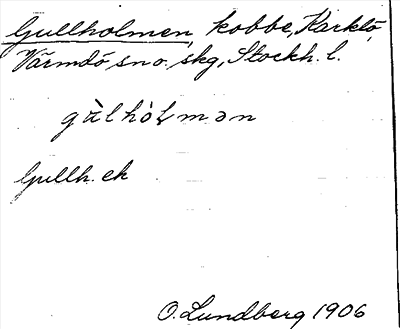 Gullholmen, kobbe, Karklö,
Värmdö sn o. skg, Stockh. l.
gù̵lhòlmən
Gullh. ek
O. Lundberg 1906